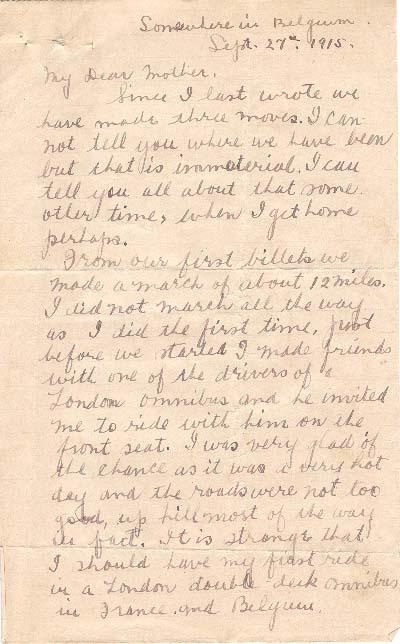 Somewhere in Belgium.
Sept. 27th 1915.
My Dear Mother,
Since I last wrote we
have made three moves. I can
not tell you where we have been
but that is immaterial. I can
tell you all about that some
other time, when I get home
perhaps.
From our first billets we
made a march of about 12 miles.
I did not march all the way
as I did the first time, just
before we started I made friends
with one of the drivers of a
London omnibus and he invited
me to ride with him on the
front seat. I was very glad of
the chance as it was a very hot
day and the roads were not too
good, up hill most of the way
in fact. It is strange that
I should have my first ride
in a London double-deck omnibus
in France and Belgium.